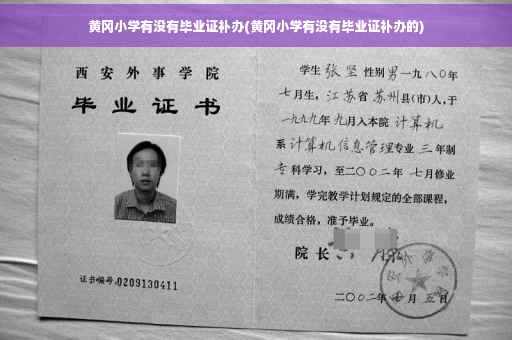 黄冈小学有没有毕业证补办(黄冈小学有没有毕业证补办的)
西安外事学院
毕业证书
证书编号:0209130411
学生 张坚 性别男一九八〇年
七月生，江苏省 苏州县(市)人，于
一九九九年九月入本院 计算机
系 计算机信息管理专业 三 年制
专科学习，至二〇〇二年 七月修业
期满，学完教学计划规定的全部课程，
成绩合格，准予毕业。
院 长
二〇〇二年 月 五日